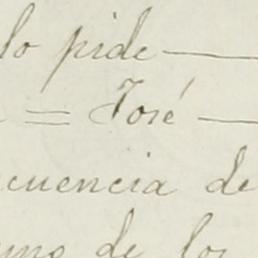 lo pide —
= José —
cuencia de
uno de los